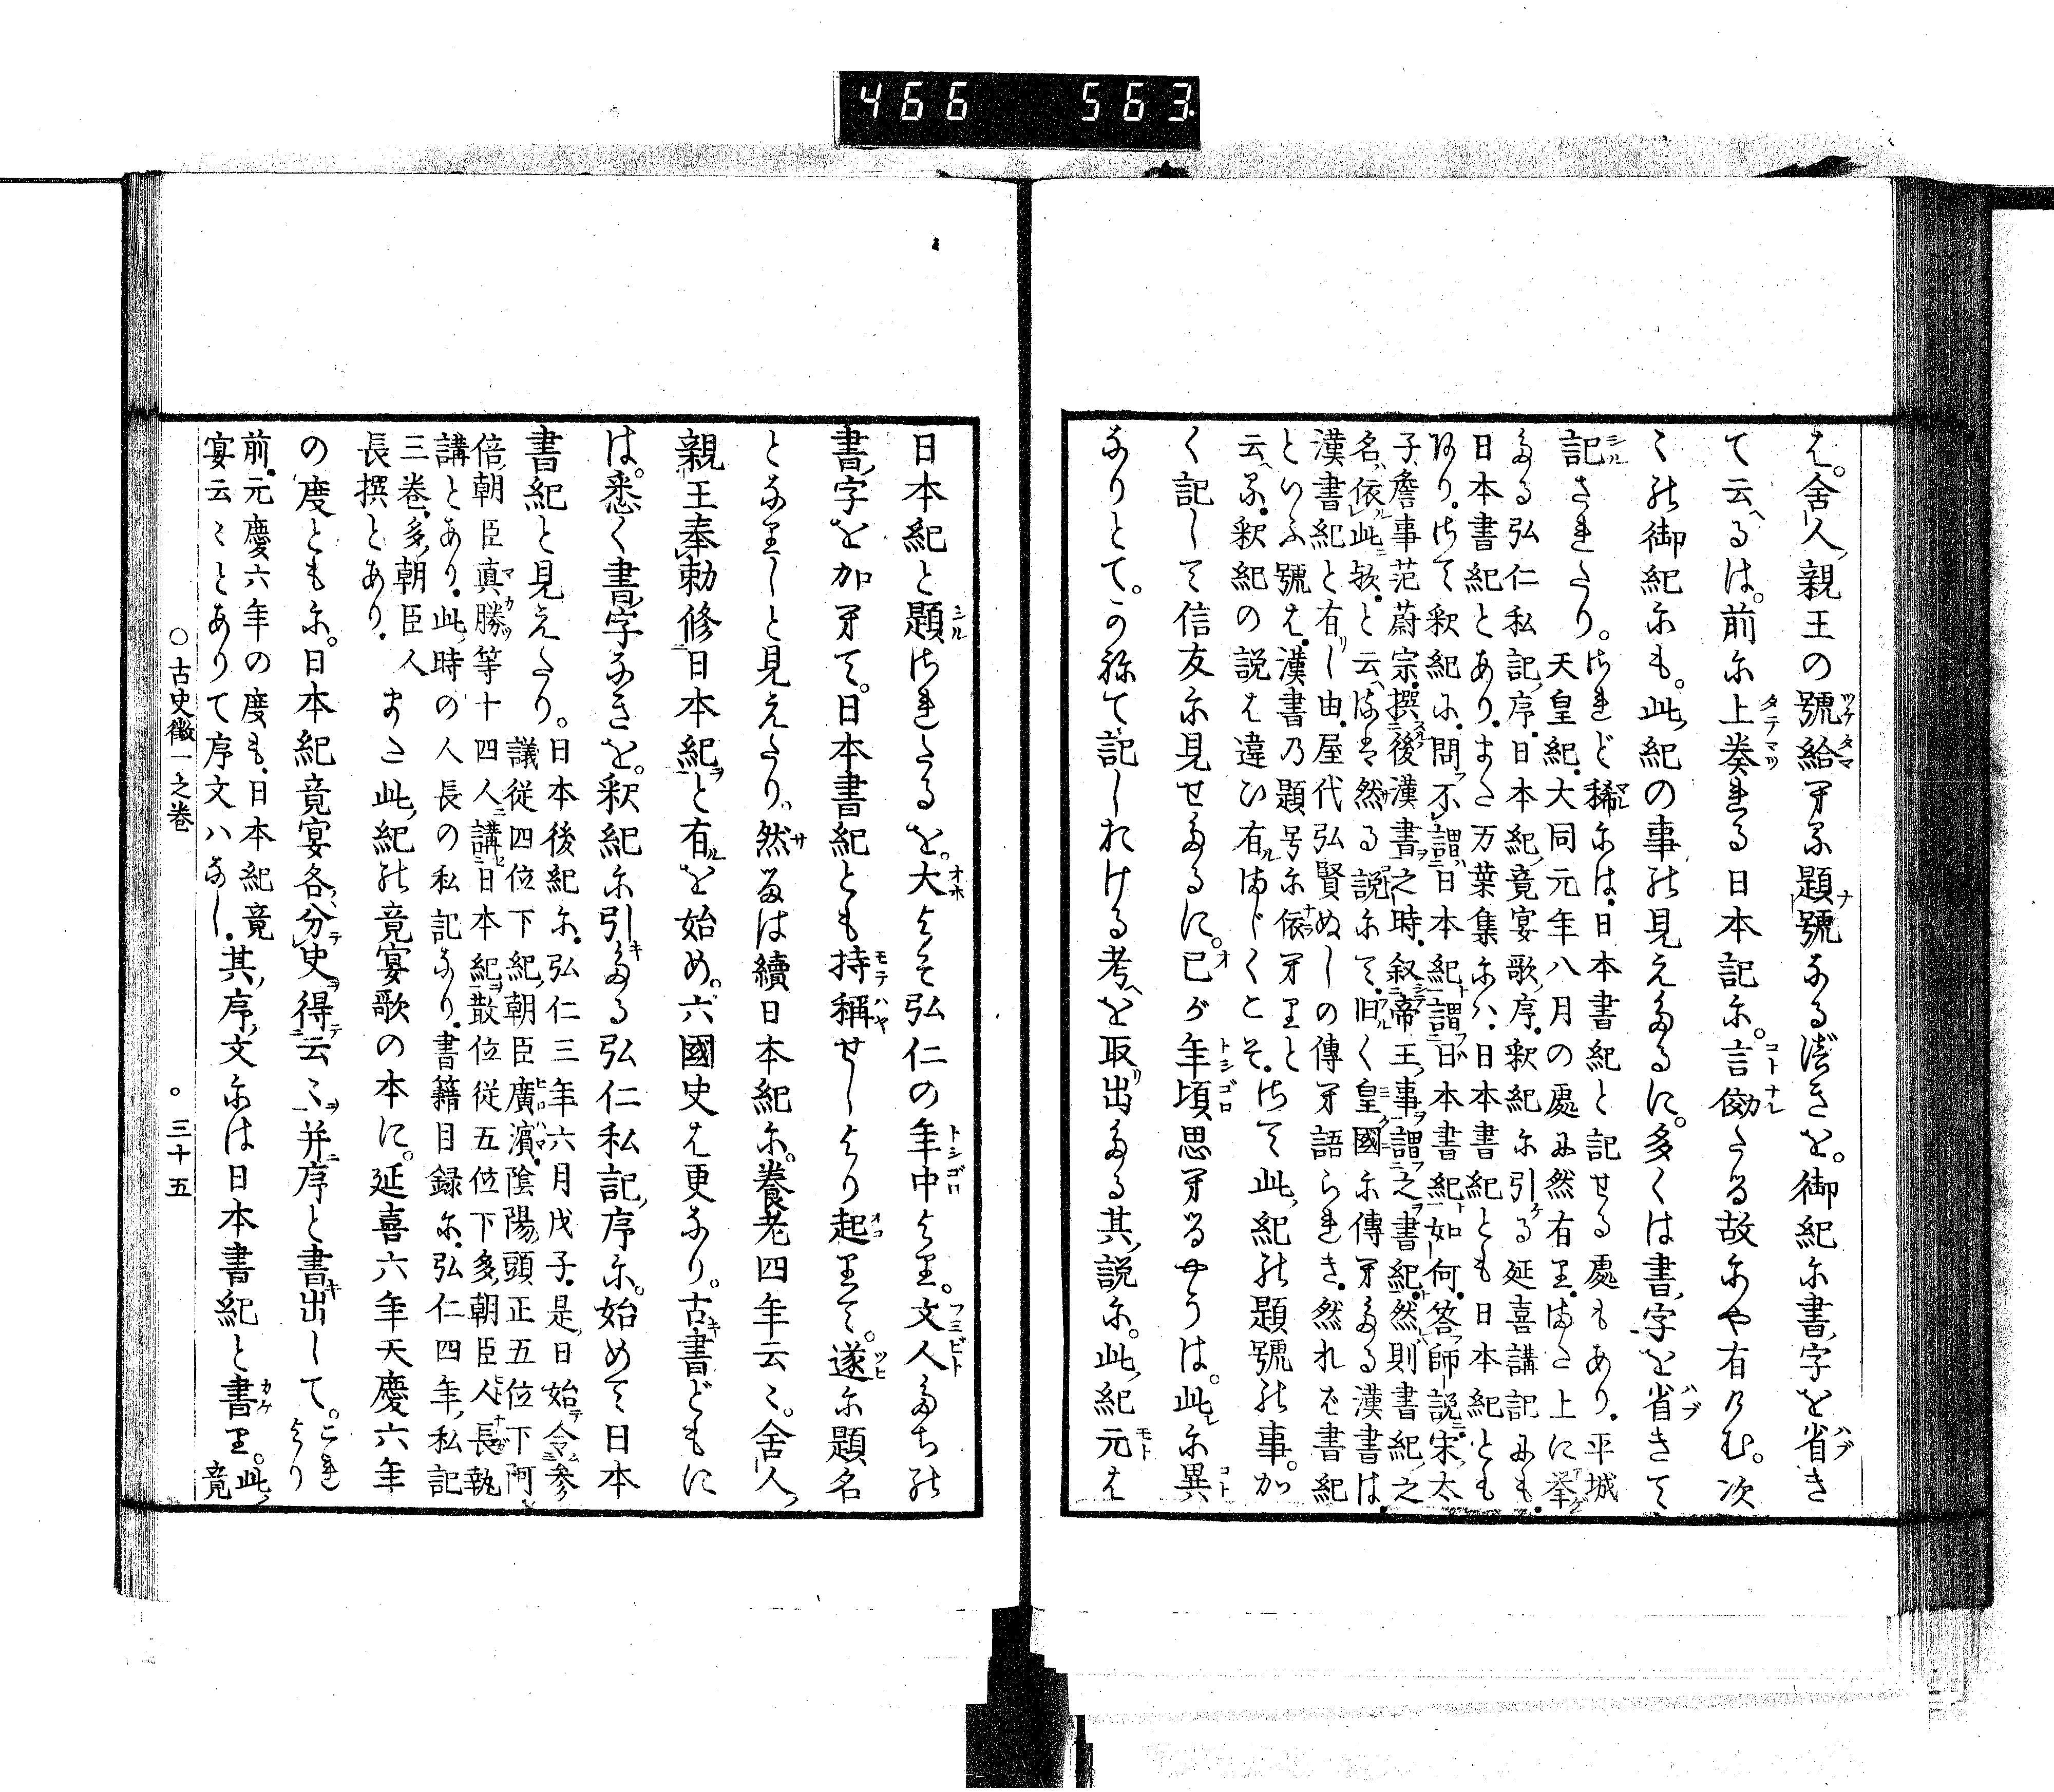 466 563
は。舍人親王の號給へる題號なる故きを。御紀に書字を省き
て云へるは。前に上奏れる日本記に。言傚たる故にや有けむ。次
々の御紀にも。此紀の事の見えたるに。多くは書字を省きて
記されたり。されど稀には。日本書紀と記せる處もあり。平城
天皇紀。大同元年八月の處に然有り。また上に挙
たる弘仁私記序。日本紀竟宴歌序。釈紀に引る延喜講記にも。
日本書紀とあり。また万葉集には、日本書紀とも日本紀とも
あり。さて釈紀に。問不謂日本紀謂日本書紀如何。答師說宋太
子詹事范蔚宗。撰後漢書之時。叙帝王事謂之書紀。然則書紀之
名依此歟。と云へるは然る說にて。旧く皇國に傳へたる漢書は。
漢書紀と有し由。屋代弘賢ぬしの傳へ語られき。然れば書紀
といふ號は。漢書の題号に依へりと
云へる。釈紀の說は違ひ有まじくこそ。さて此紀の題號の事。か
く記して信友に見せたるに。已が年頃思へるやうは。此に異
なりとて。かねて記しおける考へを取出たる其說に。此紀元は
日本紀と題されたるを。大よそ弘仁の年中より。文人たちの
書字を加へて。日本書紀とも持稱せしより起りて。遂に題名
となりしと見えたり。然るは續日本紀に。養老四年云々。舍人
親王奉勅修日本紀と有るを始め。六國史は更なり。古書どもに
は。悉く書字なきを。釈紀に引たる弘仁私記序に。始めて日本
書紀と見えたり。日本後紀に。弘仁三年六月戊子。是日始令参
議從四位下紀朝臣廣濱。陰陽頭正五位下阿
倍朝臣真勝等十四人講日本紀。散位從五位下多朝臣人長執
講とあり。此時の人長の私記なり。書籍目録に。弘仁四年私記
三巻。多朝臣人
長撰とあり。また此紀の竟宴歌の本に。延喜六年天慶六年
の度ともに。日本紀竟宴各分史得云々并序と書出して。これより
前。元慶六年の度も、日本紀竟
宴云々とありて序文ハなし。其序文には日本書紀と書り。此竟
○古史徵一之巻
。三十五